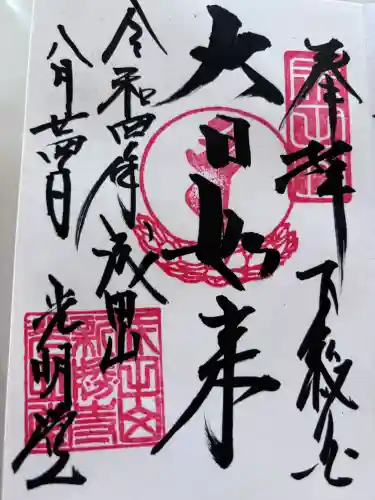 奉拝 下総国
大日如来
令和四年 成田山
八月廿四日 光明堂
新勝寺